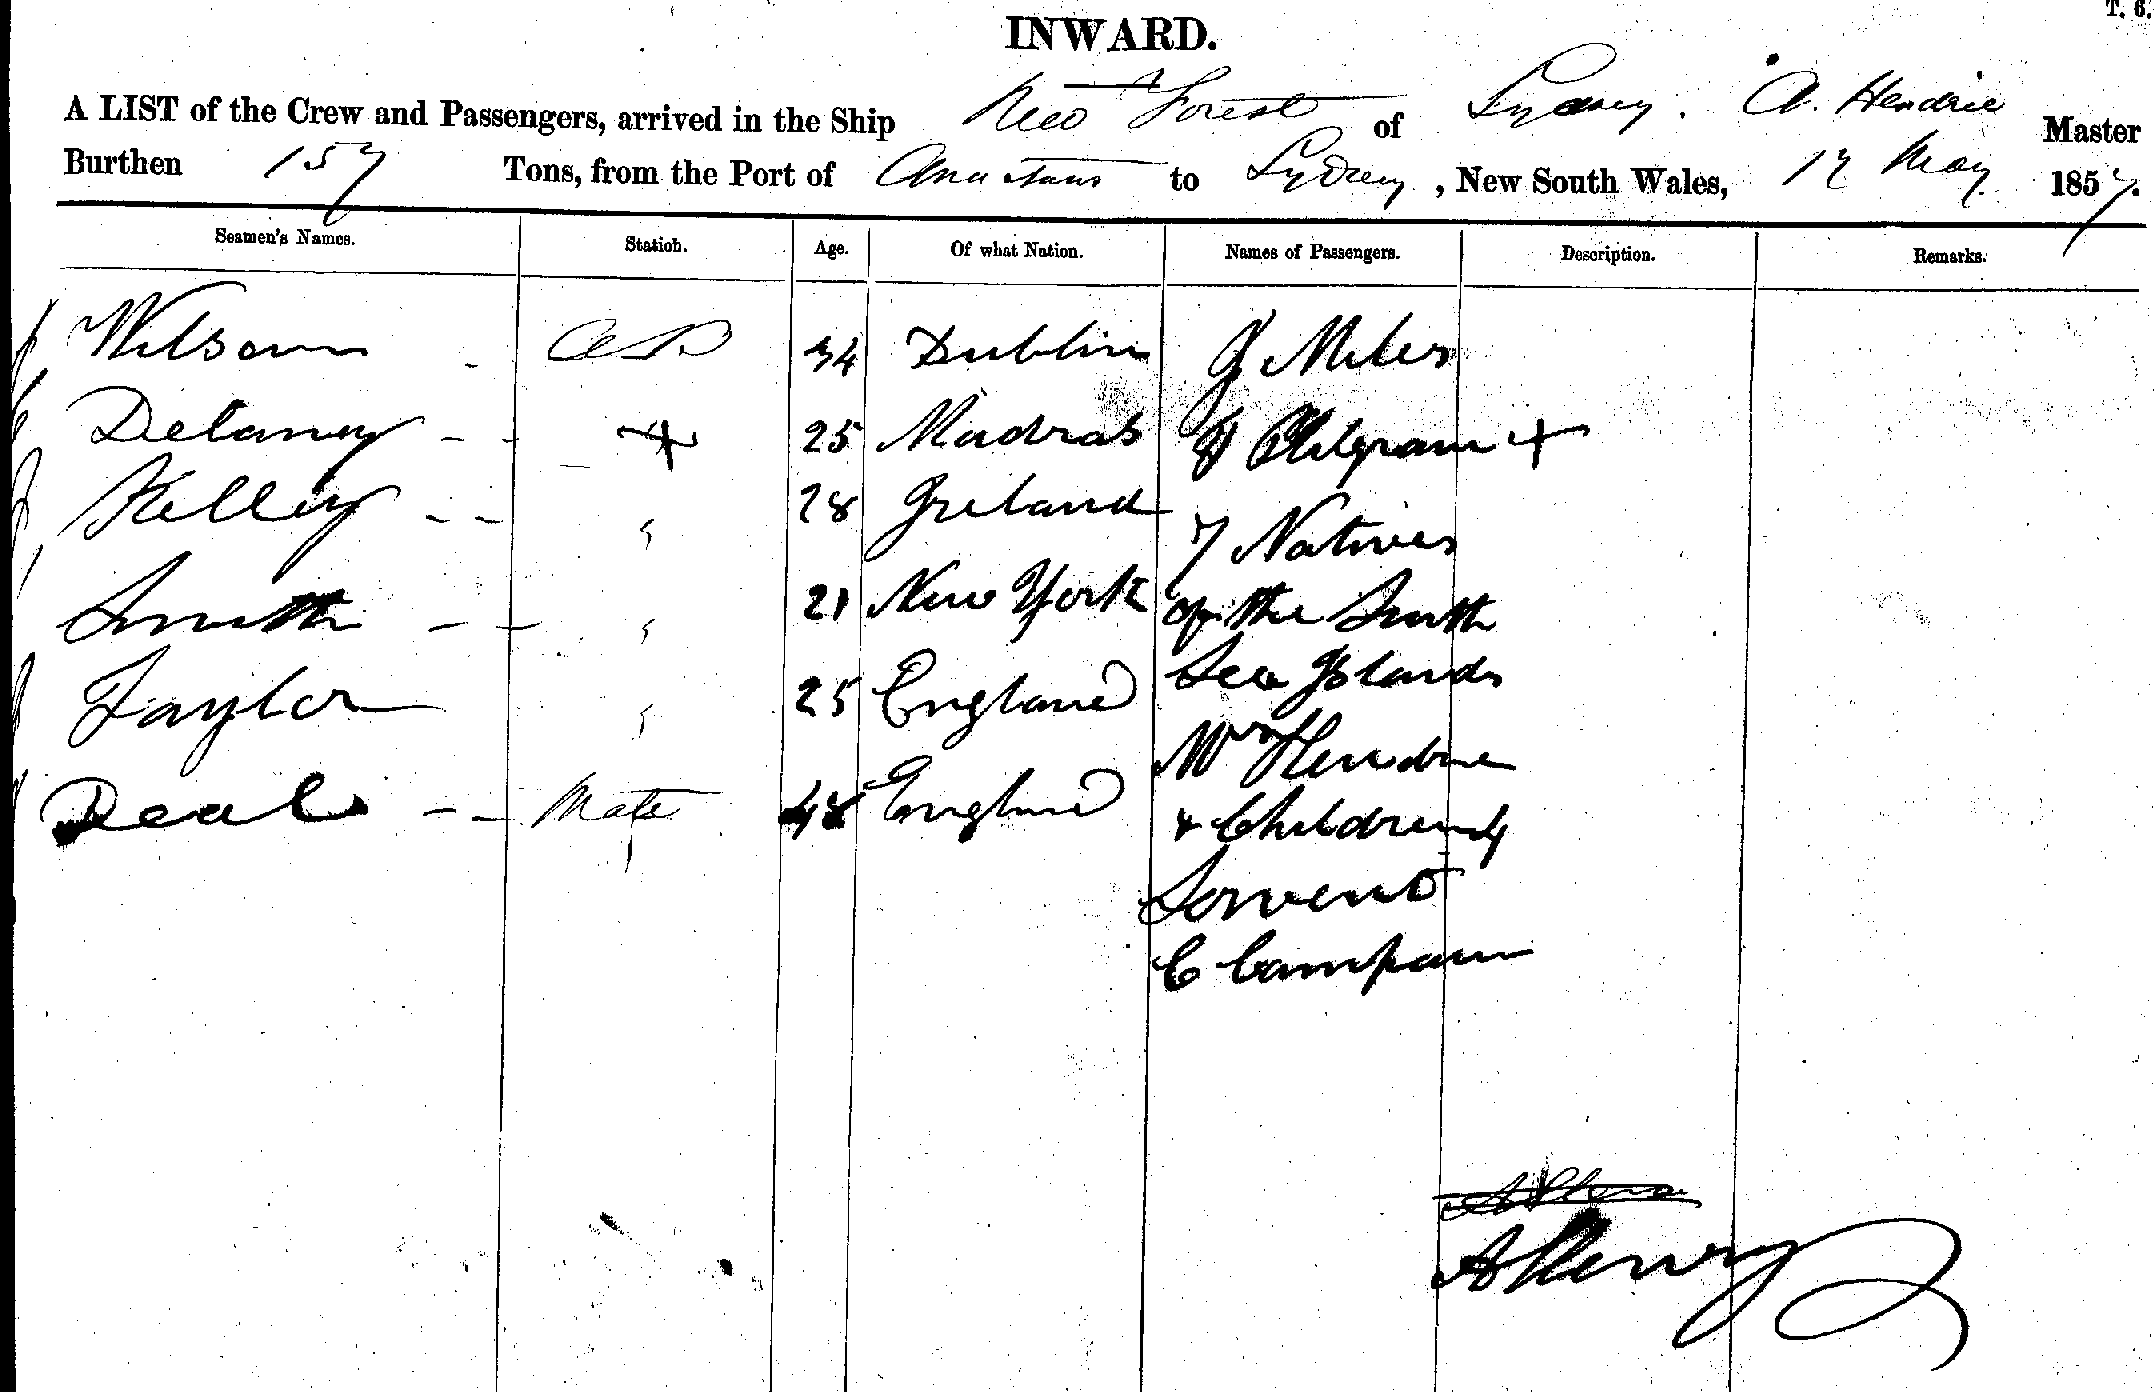 T. 6.
INWARD.
A LIST of the Crew and Passengers, arrived in the Ship New Forest of Sydney. A. Hendrie Master
Burthen 157 Tons, from the Port of to Sydney, New South Wales, 12 May 1857.
Seamen's Names. Station. Age. Of what Nation. Names of Passengers. Description. Remarks.
Wilson - AB 34 Dublin J Miles
Delaney - - + 25 Madras +
Kelley - - " 28 Ireland 7 Natives
Smith - - " 21 New York of the South
Taylor " 25 England Sea Islands
Mrs Hendrie
Deal - - Mate 48 England & Children &
Servent
C
A Henry